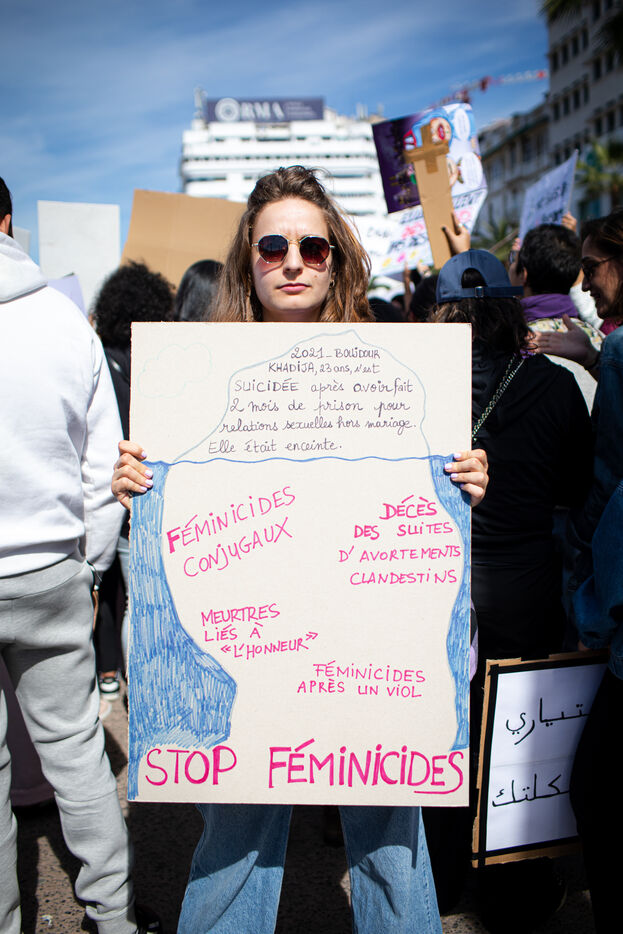 RMA
2021_ BOUJDOUR
KHADIJA, 23 ans, s'est
SUICIDÉE après avoir fait
2 mois de prison pour
relations sexuelles hors mariage.
Elle était enceinte.
FÉMINICIDES
CONJUGAUX
DÉCÈS
DES SUITES
D'AVORTEMENTS
CLANDESTINS
MEURTRES
LIÉS À
«L'HONNEUR»
FÉMINICIDES
APRÈS UN VIOL
STOP FÉMINICIDES